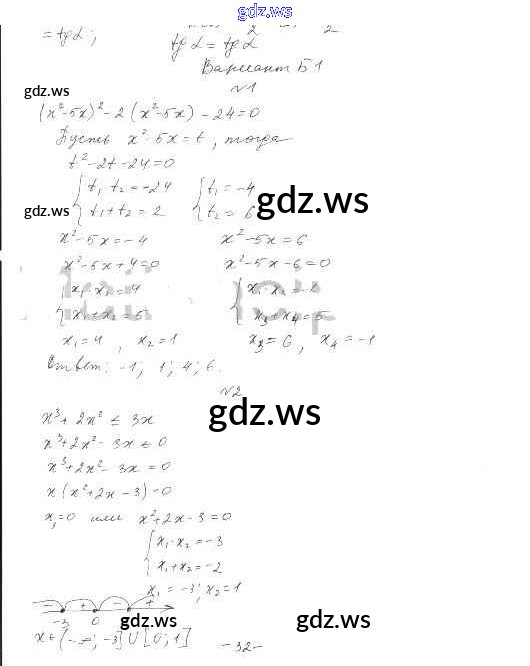 gdz.ws
= tg α ;
tg α = tg α
gdz.ws
Вариант Б1
№1
(x²-5x)² - 2(x²-5x) - 24=0
Пусть x²-5x=t, тогда
t²-2t-24=0
t₁·t₂=-24
t₁+t₂=2
t₁=-4
t₂=6
gdz.ws
gdz.ws
x²-5x=-4
x²-5x=6
x²-5x+4=0
x²-5x-6=0
x₁·x₂=4
x₁+x₂=5
x₃+x₄=5
x₁=4, x₂=1
x₃=6, x₄=-1
Ответ: -1; 1; 4; 6.
№2
gdz.ws
x³+2x² ≤ 3x
x³+2x²-3x ≤ 0
x³+2x²-3x=0
x(x²+2x-3)=0
x₃=0 или x²+2x-3=0
x₁·x₂=-3
x₁+x₂=-2
x₁=-3; x₂=1
- + - +
-3 0
gdz.ws
gdz.ws
x∈(-∞; -3]∪[0; 1]
-32-
gdz.ws